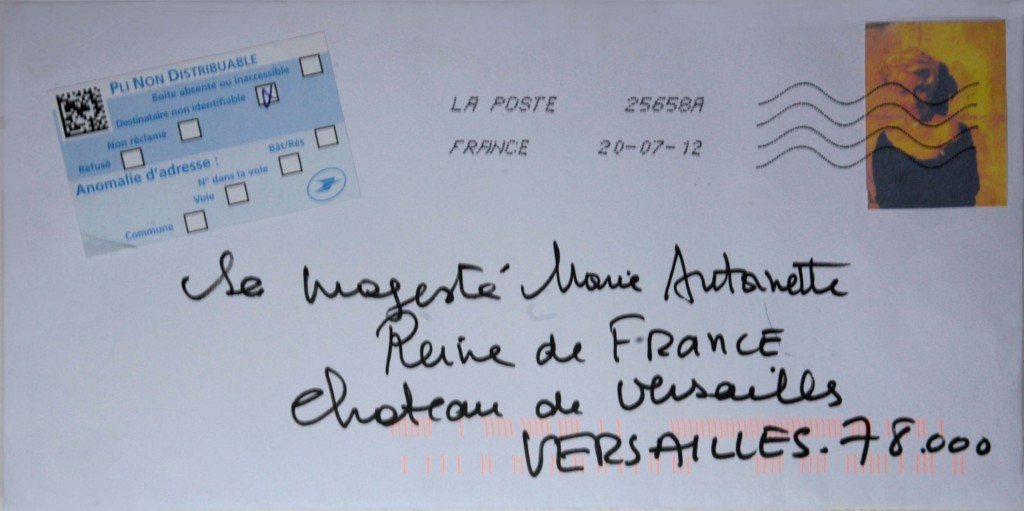 PLI NON DISTRIBUABLE
Boîte absente ou inaccessible
Destinataire non identifiable
Non réclamé
Refusé
Anomalie d'adresse :
Bât/Rés
N° dans la voie
Voie
Commune
LA POSTE 25658A
FRANCE 20-07-12
Sa magesté Marie Antoinette
Reine de FRANCE
Chateau de Versailles
VERSAILLES. 78.000